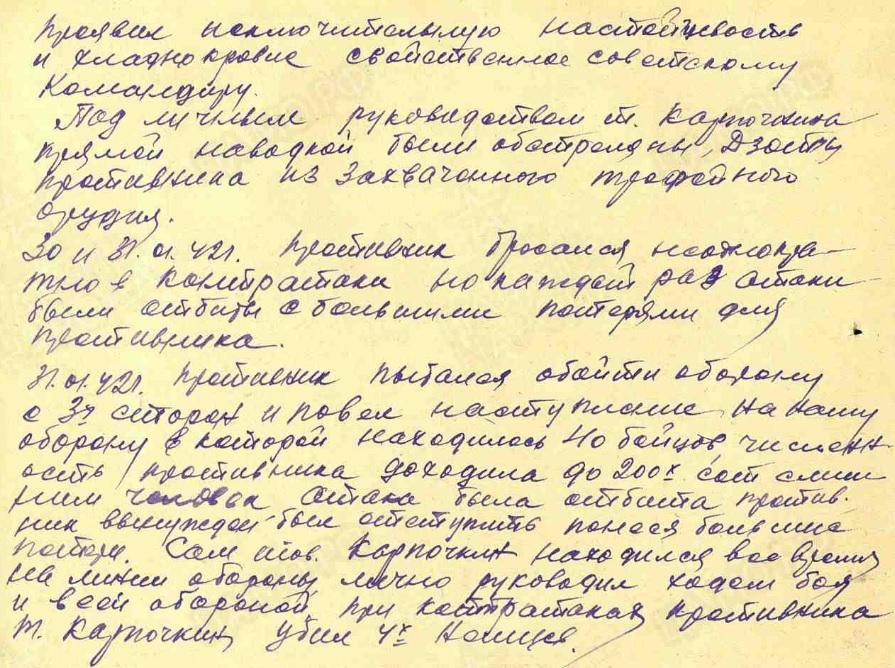 проявил исключительную настойчивость
и хладнокровие свойственное советскому
командиру.
Под личным руководством т. Карпочкина
прямой наводкой были обстреляны Дзоты
противника из захваченного трофейного
орудия.
30 и 31.01.42г. Противник бросался неоднокра-
тно в контратаки но каждый раз атаки
были отбиты с большими потерями для
противника.
31.01.42г. противник пытался обойти оборону
с 3х сторон и повел наступление на нашу
оборону в которой находилось 40 бойцов, числен-
ость противника доходила до 200х сот слиш-
ним человек атака была отбита против-
ник вынужден был отступить понеся большие
потери. Сам тов. Карпочкин находился все время
на линии обороны, лично руководил ходом боя
и всей обороной, при контратаках противника
т. Карпочкин убил 4х Немцев.